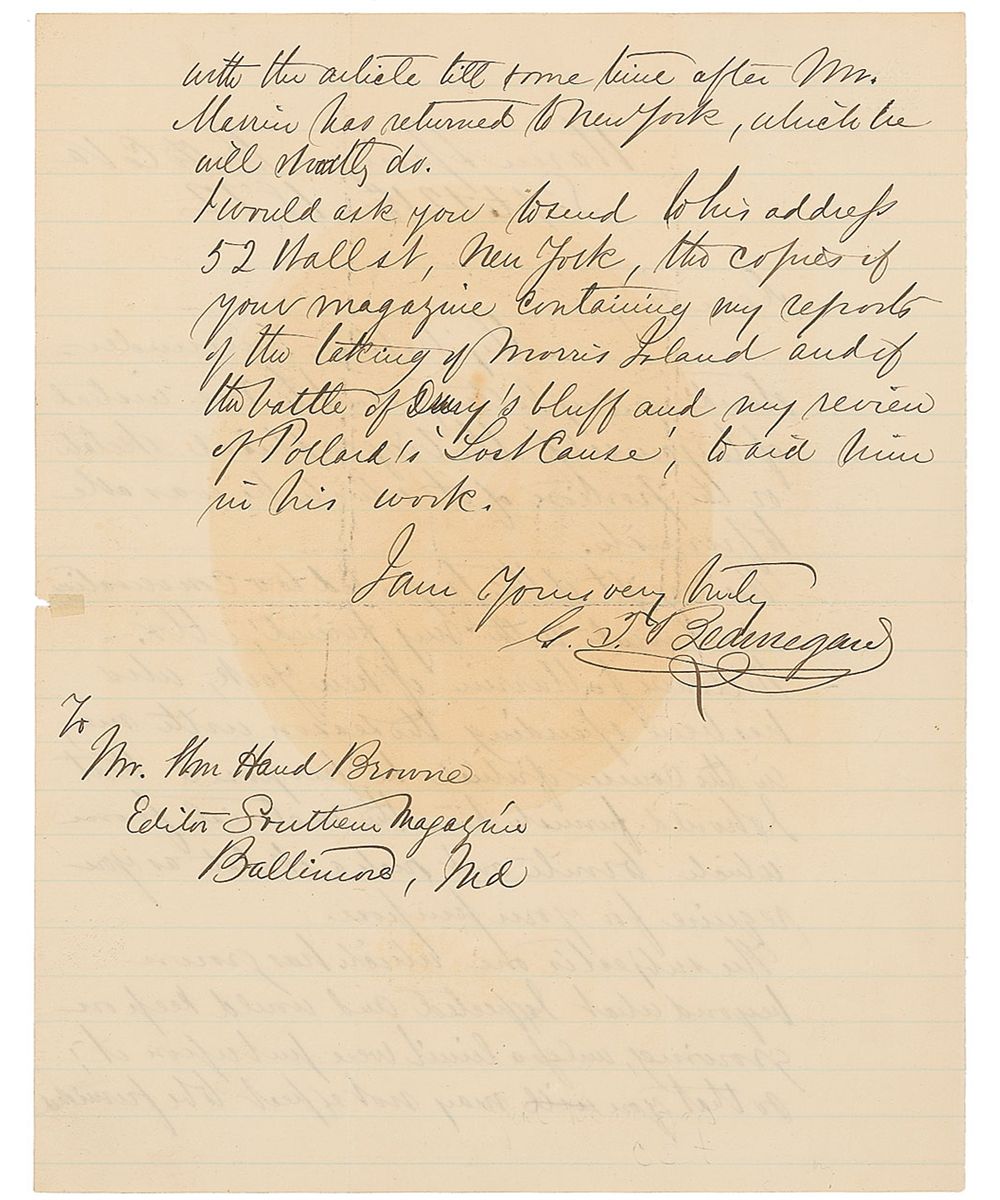 with the article till some time after Mr.
Marrin has returned to New York, which he
will shortly do.
I would ask you to send to his address
52 Wall st, New York, the copies of
your magazine containing my reports
of the taking of Morris Island and of
the battle of Drury's bluff and my review
of Pollard's 'Lost Cause', to aid him
in his work.
I am Yours very truly
G. T. Beauregard
To
Mr. Wm Hand Browne
Editor Southern Magazine
Baltimore, Md